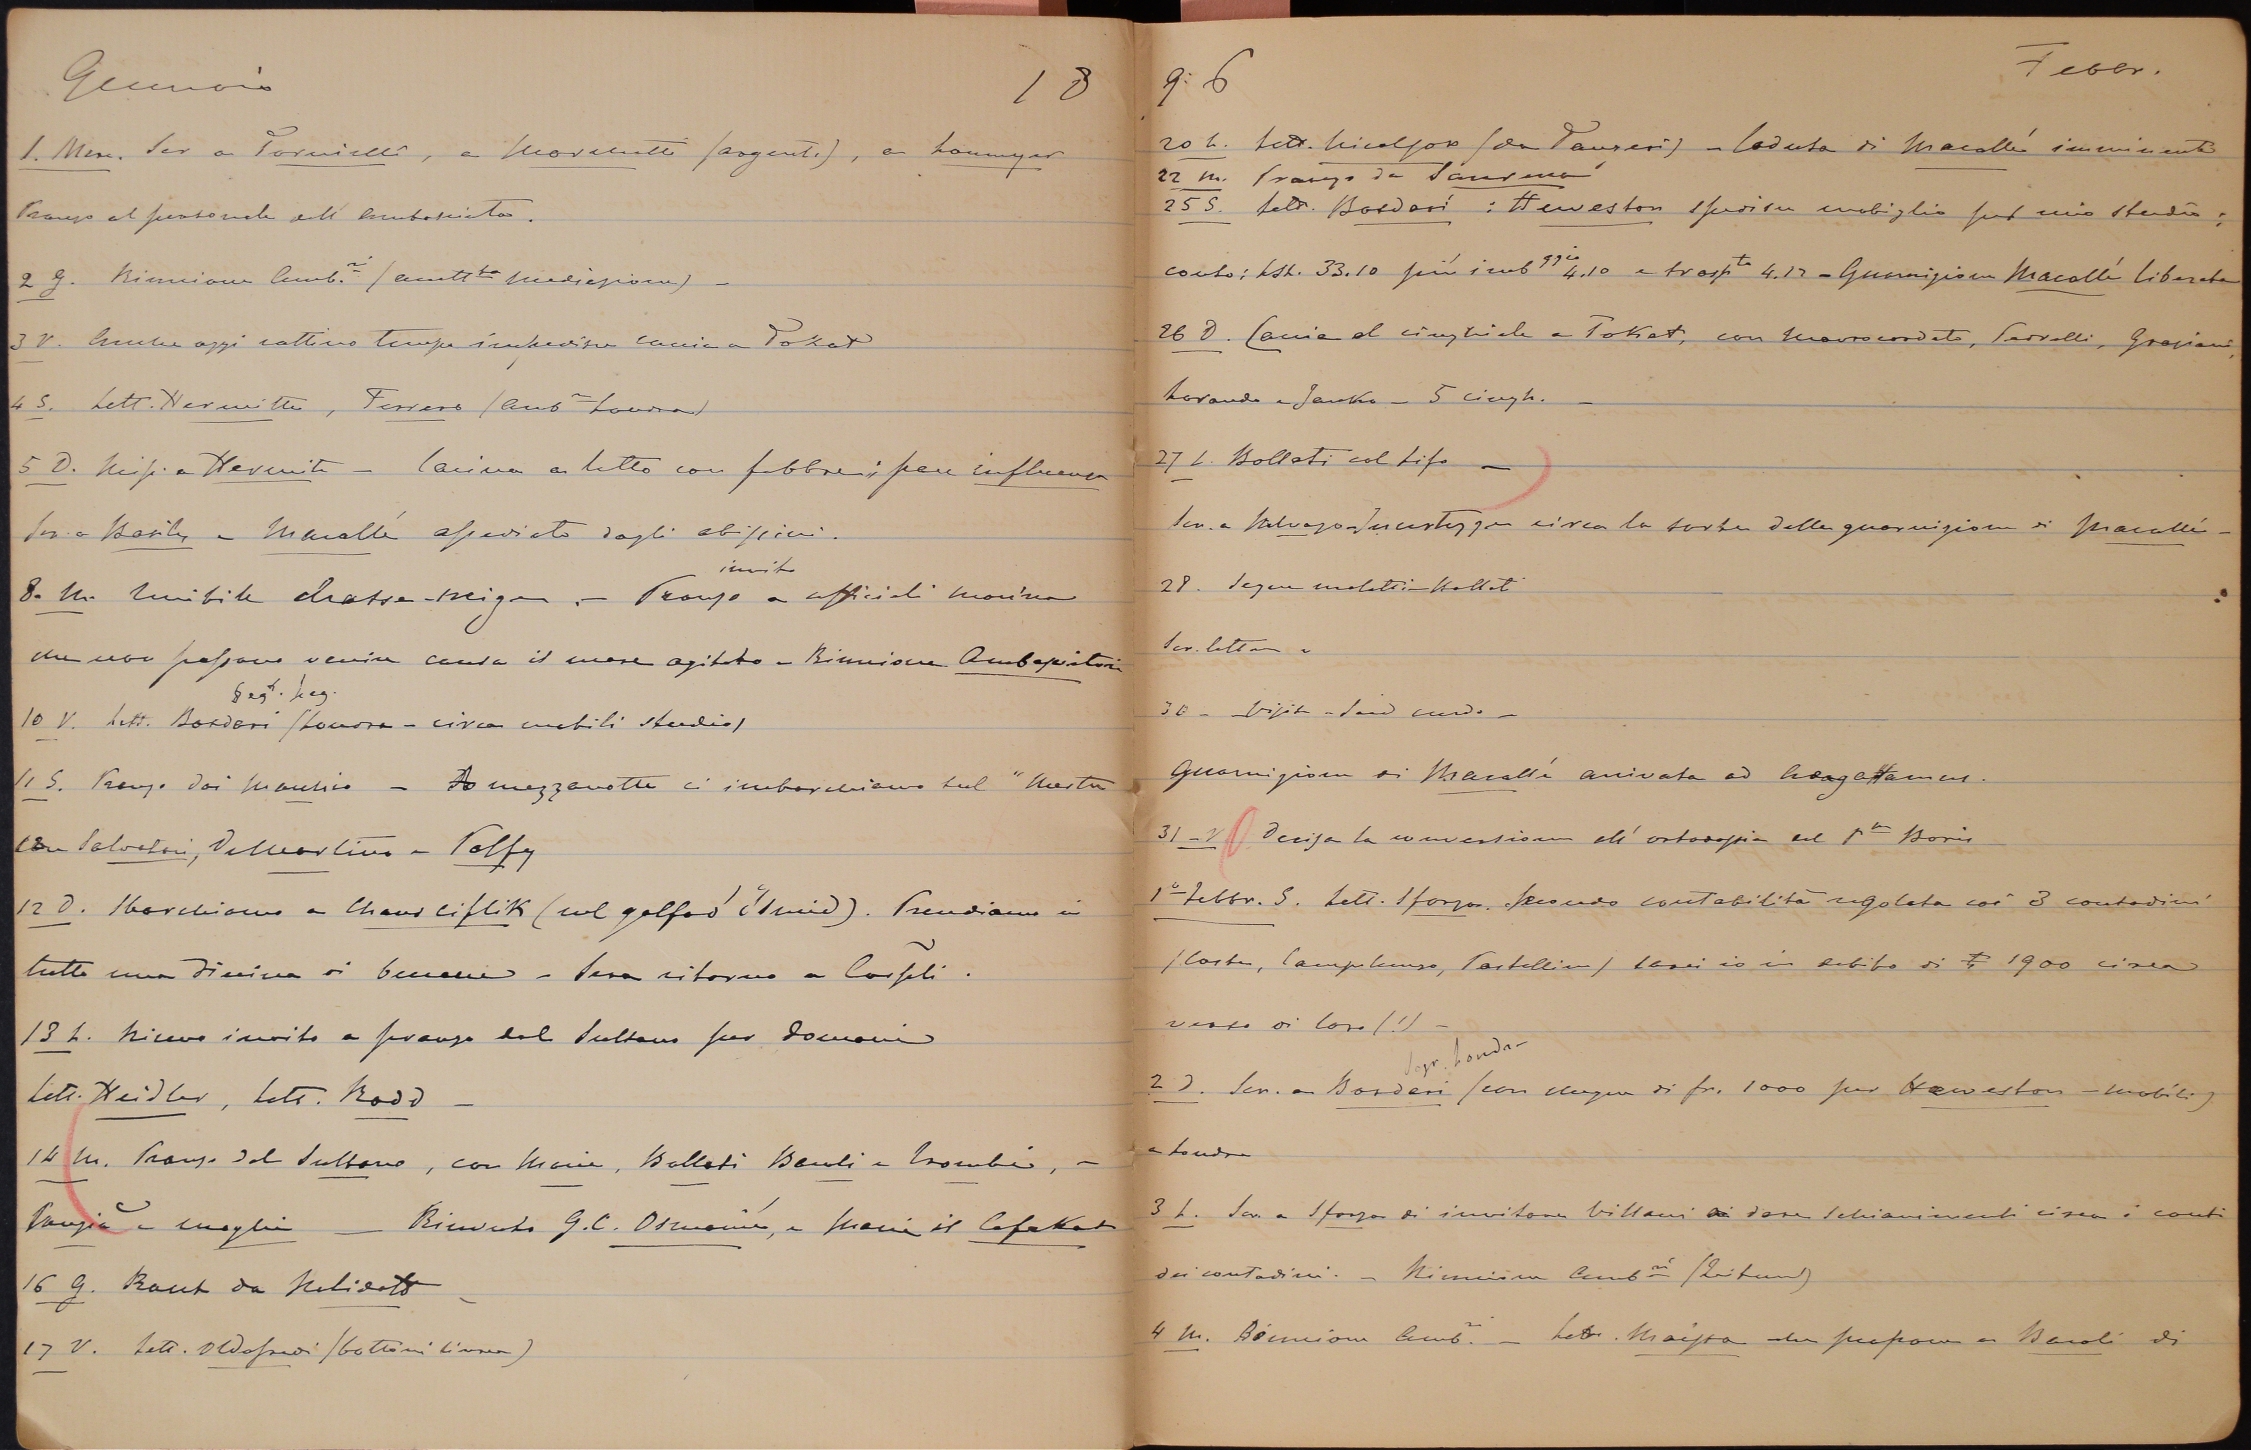 Gennaio 18
1. Merc. Scr a Tornielli, a (argent.), a
Pranzo al personale dell'ambasciata.
2 G. Riunione Amb.ri ( mediazione) –
3 V. Anche oggi cattivo tempo impedisce caccia a Tokat
4 S. Lett. Hermitte, Ferrero (Amb Londra)
5 D. Risp. a Hermite – Carina a letto con febbre; pare influenza
Scr. a Basily – Macallé assediata dagli abissini.
invito
8. M. – Pranzo a ufficiali marina
che non possono venire causa il mare agitato – Riunione Ambasciatori
Segr. Leg.
10 V. Lett. Bosdari (Londra – circa mobili studio)
11 S. Pranzo dai – A mezzanotte ci imbarchiamo sul "
con Salvatori, DeMartino e Palffy
12 D. Sbarchiamo a Chaus ciflik (nel golfo d'Ismid). Prendiamo in
tutto una dicina di beccacce – Sera ritorno a
13 L. Ricevo invito a pranzo dal Sultano per domani
Lett. Heidler, Lett. Rodd –
14 M. Pranzo dal Sultano, con Maria, Bollati Baroli e Trombi, –
Pangiri e moglie – Ricevuto G.C. Osmanié, e Maria il Cefakat
16 G. Raut da Nelidoff
17 V. Lett. Oldofredi (bottoni livrea)
9: 6 Febbr.
20 L. Lett. (da Tangeri) – Caduta di Macallé imminente
22 M. Pranzo da
25 S. Lett. Bosdari : Heweston spedisce mobiglio pel mio studio;
conto: Lst. 33.10 più imbggio 4.10 e traspto 4.12 – Guarnigione Macallé liberata
26 D. Caccia al cinghiale a Tokat, con Mavrocordato, Graziani,
e Janko – 5 cingh. –
27 L. Bollati col tifo –
Scr. a Salvago – Incertezza circa la sorte della guarnigione di Macallé –
28. Segue malattia Bollati
Scr. lettere
30 – Visita
Guarnigione di Macallé arrivata ad
31 – V Decisa la conversione all'ortodossia del Pe Boris
1° Febbr. S. Lett. Sforza. Secondo contabilità regolata coi 3 contadini
(Costa, , Pastellino) sarei io in debito di 1900 circa
verso di loro (!) –
Segr. Londra
2 D. Scr. a Bosdari (con cheque di fr. 1000 per Heweston – mobilio)
a Londra
3 L. Scr. a Sforza di invitare Villani a dare schiarimenti circa i conti
dei contadini. – Riunione Ambri (Zeitun)
4 M. Riunione Amb.ri – Lett. Maissa che propone a Baroli di